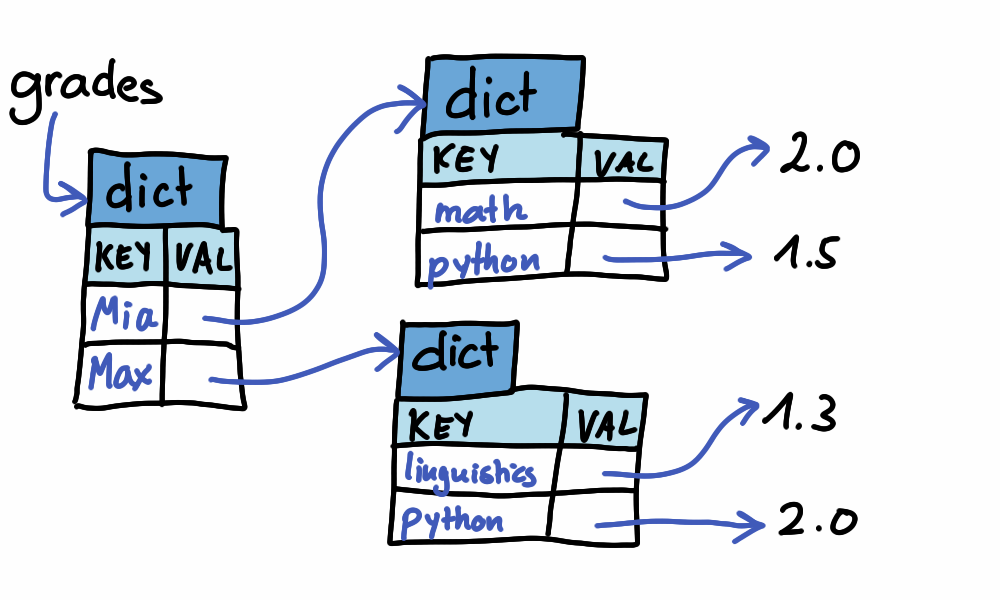 grades
dict
KEY VAL
Mia
Max
dict
KEY VAL
math 2.0
python 1.5
dict
KEY VAL
linguistics 1.3
python 2.0